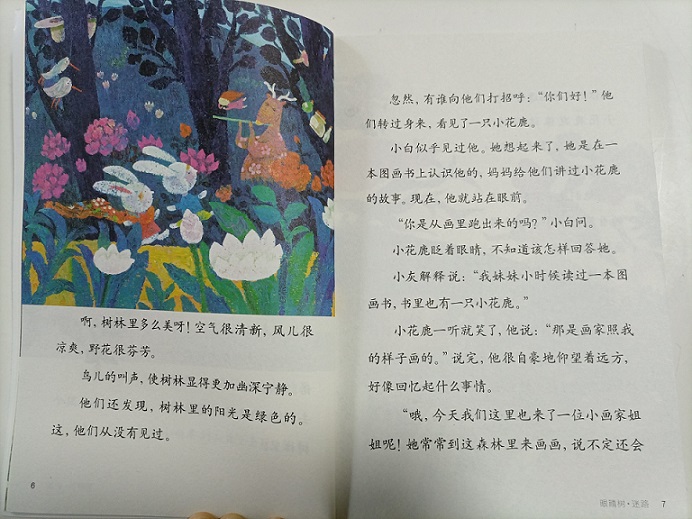 啊,树林里多么美呀!空气很清新,风儿很
凉爽,野花很芬芳。
鸟儿的叫声,使树林显得更加幽深宁静。
他们还发现,树林里的阳光是绿色的。
这,他们从没有见过。
6
忽然,有谁向他们打招呼:“你们好!”他
们转过身来,看见了一只小花鹿。
小白似乎见过他。她想起来了,她是在一
本图画书上认识他的,妈妈给他们讲过小花鹿
的故事。现在,他就站在眼前。
“你是从画里跑出来的吗?”小白问。
小花鹿眨着眼睛,不知道该怎样回答她。
小灰解释说:“我妹妹小时候读过一本图
画书,书里也有一只小花鹿。”
小花鹿一听就笑了,他说:“那是画家照我
的样子画的。”说完,他很自豪地仰望着远方,
好像回忆起什么事情。
“哦,今天我们这里也来了一位小画家姐
姐呢!她常常到这森林里来画画,说不定还会
眼睛树·迷路 7